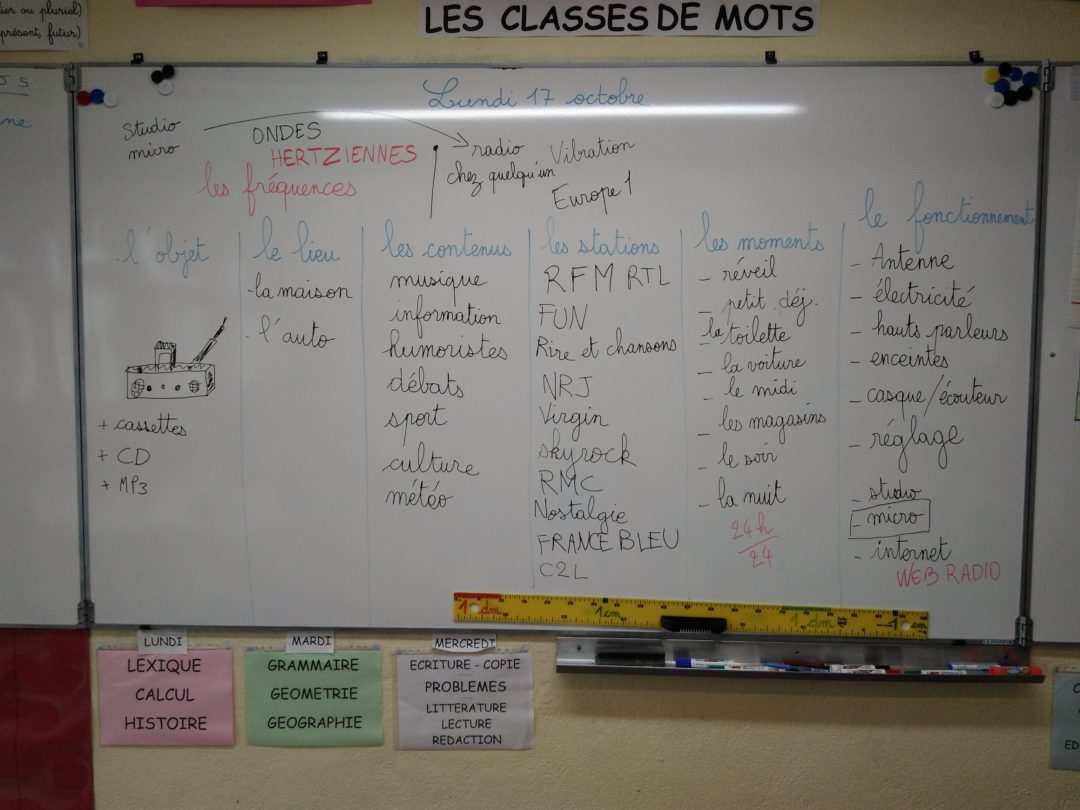 ier ou pluriel)
présent, futur)
LES CLASSES DE MOTS
Lundi 17 octobre
Studio
micro
ONDES
HERTZIENNES
les fréquences
radio
chez quelqu'un
Vibration
Europe 1
l'objet
+ cassettes
+ CD
+ MP3
le lieu
- la maison
- l'auto
les contenus
musique
information
humoristes
débats
sport
culture
météo
les stations
RFM RTL
FUN
Rire et chansons
NRJ
Virgin
skyrock
RMC
Nostalgie
FRANCE BLEU
C2L
les moments
- réveil
- petit déj.
- la toilette
- la voiture
- le midi
- les magasins
- le soir
- la nuit
24h
24
le fonctionnement
- Antenne
- électricité
- hauts parleurs
- enceintes
- casque/écouteur
- réglage
- studio
- micro
- internet
WEB RADIO
1 dm
1 cm
1 dm
1 cm
LUNDI
LEXIQUE
CALCUL
HISTOIRE
MARDI
GRAMMAIRE
GEOMETRIE
GEOGRAPHIE
MERCREDI
ECRITURE - COPIE
PROBLEMES
LITTERATURE
LECTURE
REDACTION